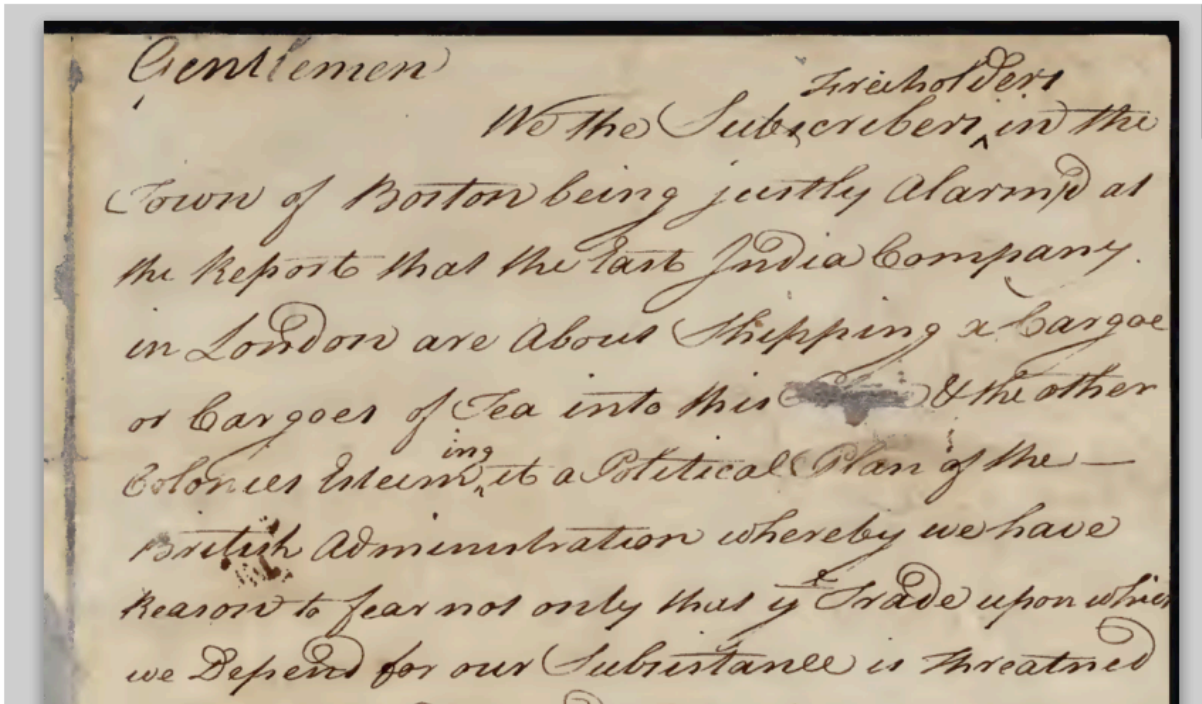 Gentlemen
Freeholders
We the Subscribers ^ in the
Town of Boston being justly Alarm'd at
the Report that the East India Company
in London are About Shipping a Cargoe
or Cargoes of Tea into this & the other
ing
Colonies Esteem ^ it a Political Plan of the —
British Administration whereby we have
Reason to fear not only that ye Trade upon which
we Depend for our Subsistance is threatned